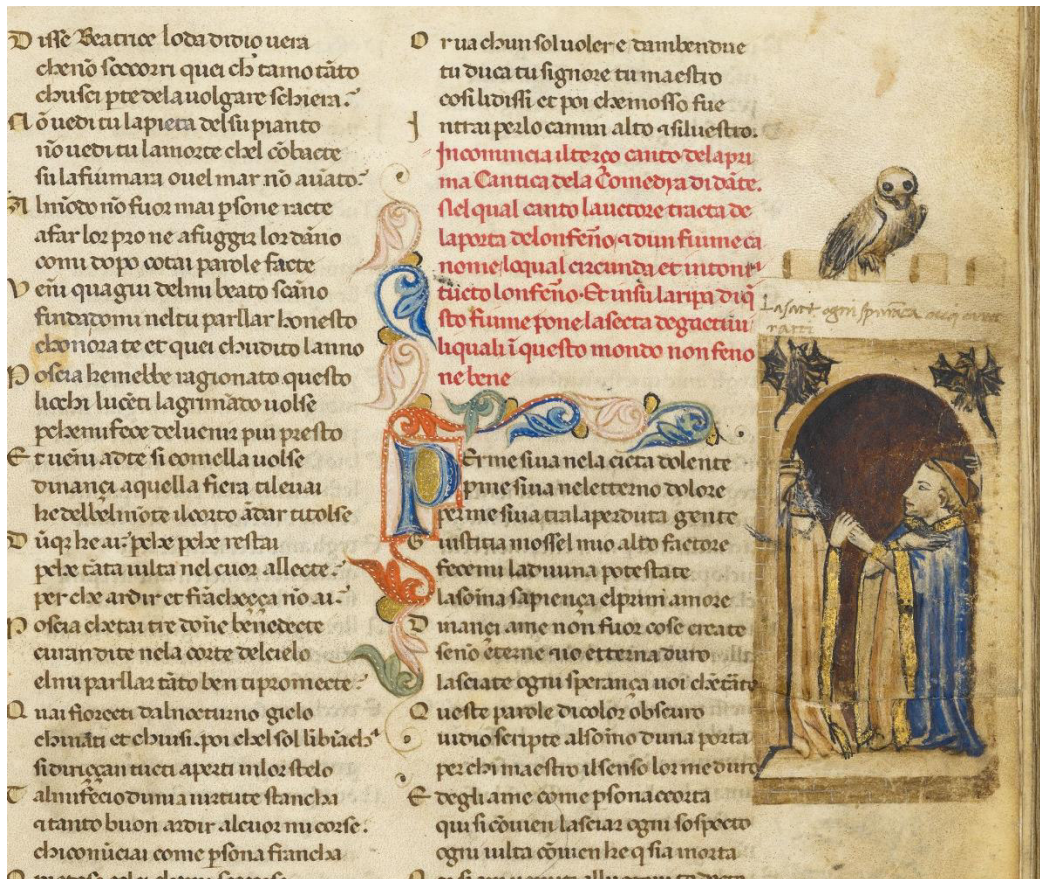 Disse Beatrice loda didio uera
chenō soccorri quei ch tamo tāto
chusci pte dela uolgare schiera
Nō uedi tu la pieta del su pianto
nō uedi tu la morte chel cōbacte
su la fiumara ouel mar nō a uāto
Al mōdo nō fuor mai psone racte
afar lor pro ne afuggir lor dāno
comi dopo cotai parole facte
Venni qua giu del mi beato scāno
findandomi nel tu parllar honesto
chonora te et quei chudito lanno
Poscia kemebbe ragionato questo
liocchi lucēti lagrimādo uolse
pchemi fece deluenir piu presto
Et ueni adte si comella uolse
dinançi aquella fiera ti leuai
ke del bel mōte il corto ādar ti tolse
Dūq; ke ai pche pche restai
pche tāta uilta nel cuor allecte
per che ardir et frācheçça nō ai
Poscia che tai tre dōne benedecte
curan di te nela corte del cielo
el mi parllar tāto ben ti promecte
Quai fiorecti dal nocturno gielo
chinati et chiusi poi chel sol libiācha
si diriççan tucti aperti in lor stelo
Tal mi fecio di mia uirtute stancha
a tanto buon ardir al cuor mi corse
chi conīciai come psona francha
Or ua chun sol uolere dambendue
tu duca tu signore tu maestro
cosi lidissi et poi che mosso fue
Intrai per lo camin alto & siluestro.
Incomincia il terço canto dela pri
ma Cantica dela Comedya di dāte.
Nel qual canto lauctore tracta de
la porta delonferno & dun fiume ca
nome loqual circunda et intorni
tucto lonferno. Et insu la ripa diq
sto fiume pone la secta de gactiui
li quali ī questo mondo non feno
ne bene
Per me si ua nela cicta dolente
p me si ua neletterno dolore
per me si ua tra la perduta gente
Giustitia mossel mio alto factore
fecemi la diuina potestate
la soma sapiença el primi amore
Dinançi ame non fuor cose create
senō eterne & io etterna duro
lasciate ogni sperança uoi chētāte
Queste parole di color obscuro
uidio scripte al somo duna porta
per chi maestro il senso lor me duro
Et degli ame come psona acorta
qui si cōuien lasciar ogni sospecto
ogni uilta cōuien ke q sia morta
Lasate ogni spirāca